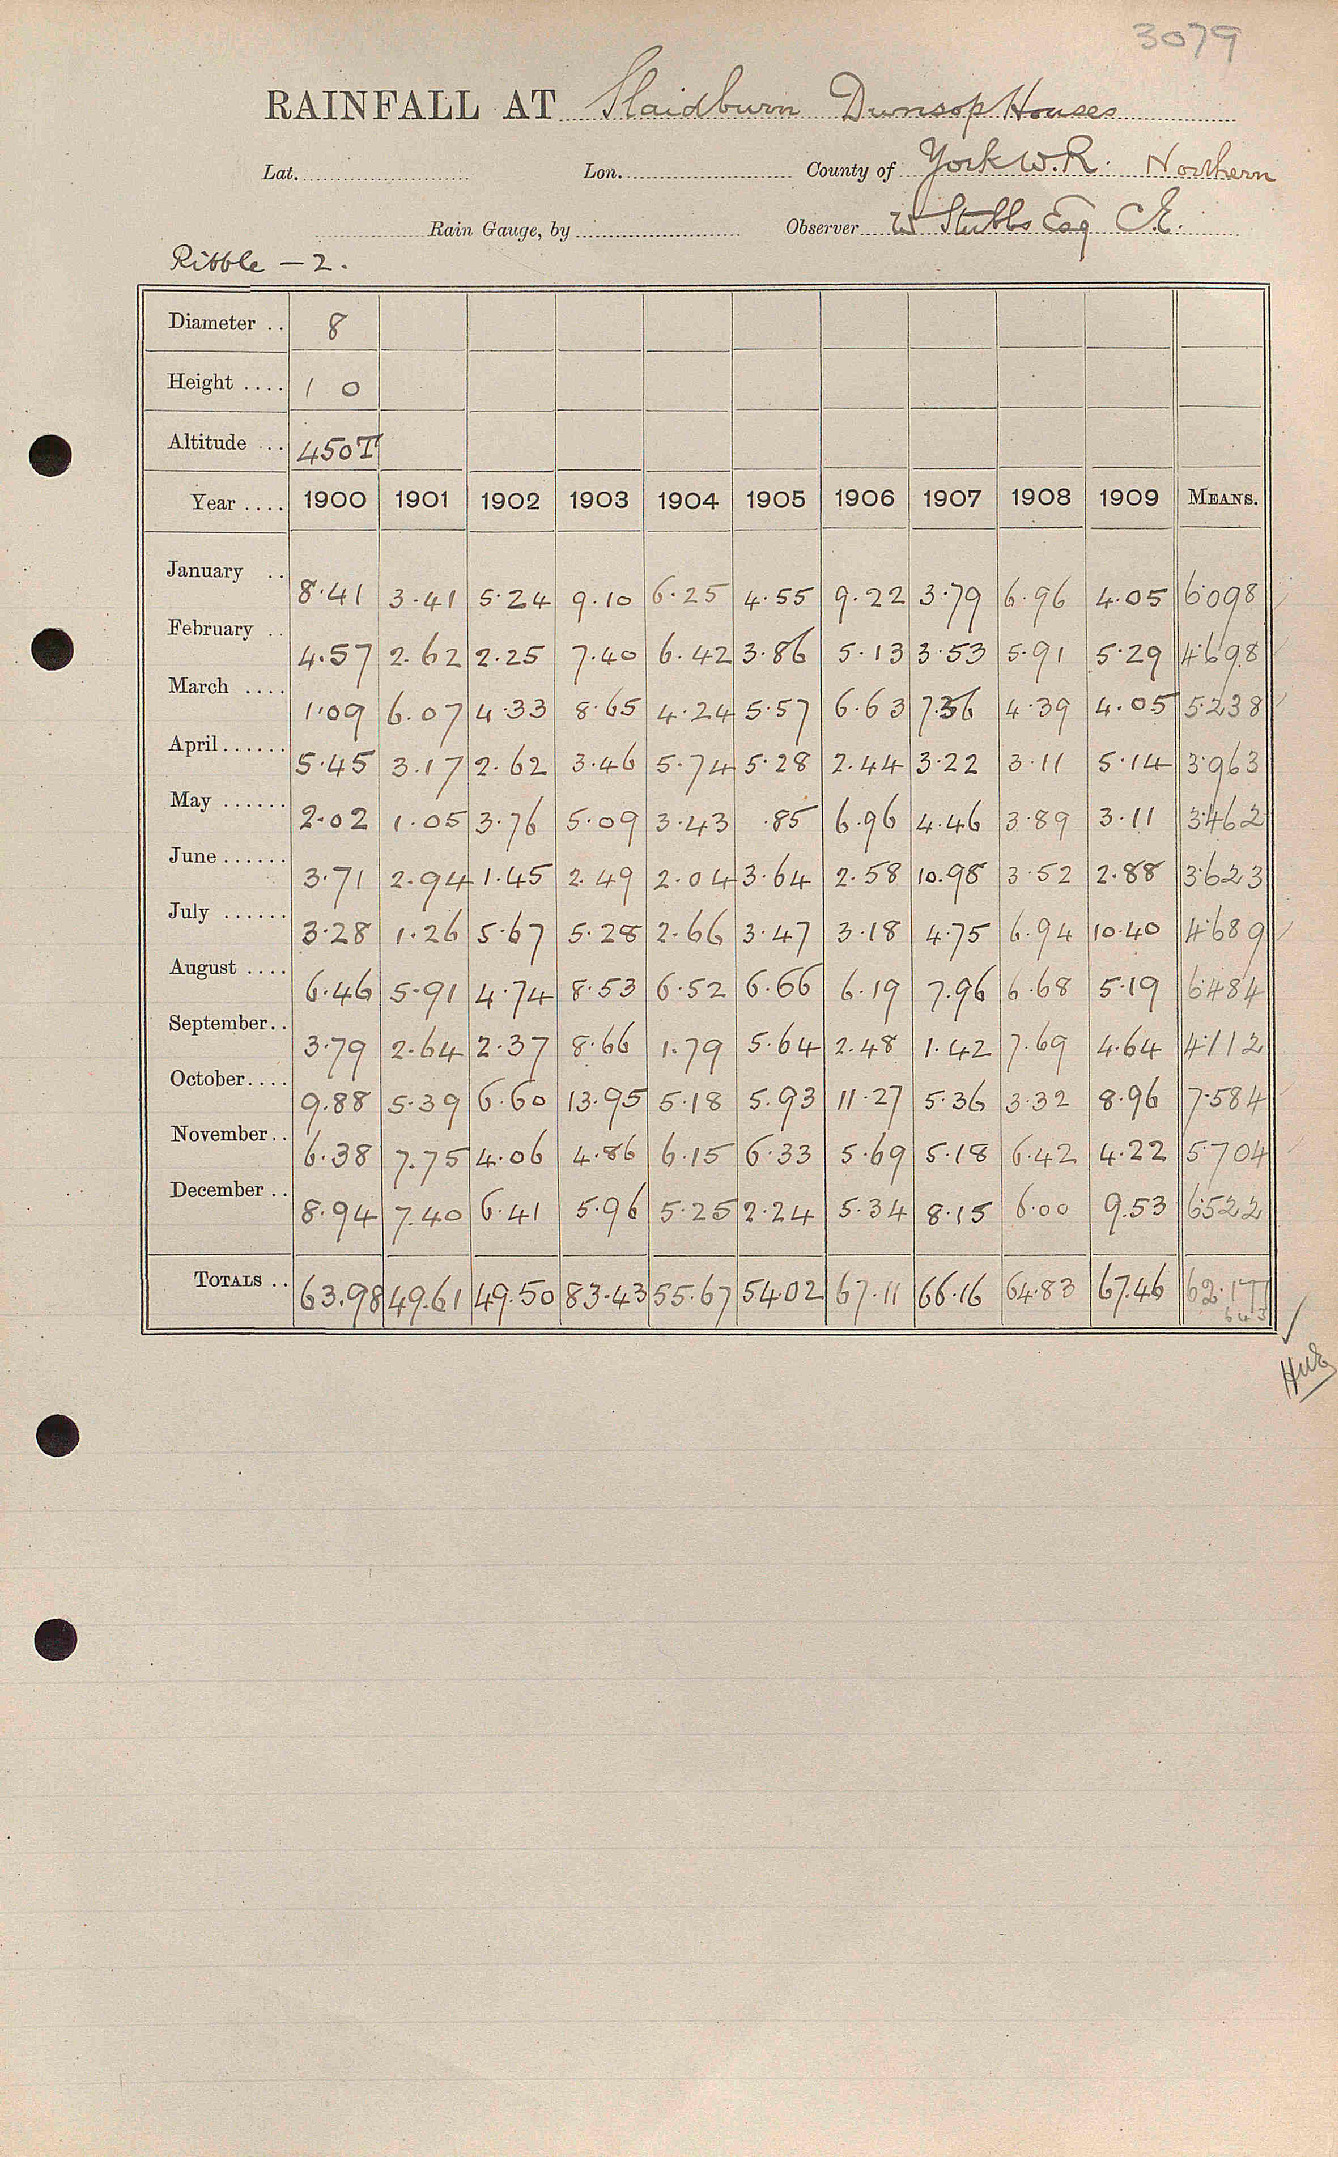 3079
RAINFALL AT Slaidburn Dunsop Houses
Lat. Lon. County of York W.R. Northern
Rain Gauge, by Observer W Stubbs Esq C.E.
Ribble - 2.
Diameter .. 8
Height .... 1 0
Altitude ... 450T
Year .... 1900 1901 1902 1903 1904 1905 1906 1907 1908 1909 MEANS.
January .. 8.41 3.41 5.24 9.10 6.25 4.55 9.22 3.79 6.96 4.05 6.098
February .. 4.57 2.62 2.25 7.40 6.42 3.86 5.13 3.53 5.91 5.29 4.698
March .... 1.09 6.07 4.33 8.65 4.24 5.57 6.63 7.36 4.39 4.05 5.238
April ...... 5.45 3.17 2.62 3.46 5.74 5.28 2.44 3.22 3.11 5.14 3.963
May ...... 2.02 1.05 3.76 5.09 3.43 .85 6.96 4.46 3.89 3.11 3.462
June ...... 3.71 2.94 1.45 2.49 2.04 3.64 2.58 10.98 3.52 2.88 3.623
July ...... 3.28 1.26 5.67 5.28 2.66 3.47 3.18 4.75 6.94 10.40 4.689
August .... 6.46 5.91 4.74 8.53 6.52 6.66 6.19 7.96 6.68 5.19 6.484
September .. 3.79 2.64 2.37 8.66 1.79 5.64 2.48 1.42 7.69 4.64 4.112
October .... 9.88 5.39 6.60 13.95 5.18 5.93 11.27 5.36 3.32 8.96 7.584
November .. 6.38 7.75 4.06 4.86 6.15 6.33 5.69 5.18 6.42 4.22 5.704
December .. 8.94 7.40 6.41 5.96 5.25 2.24 5.34 8.15 6.00 9.53 6.522
TOTALS .. 63.98 49.61 49.50 83.43 55.67 54.02 67.11 66.16 64.83 67.46 62.177